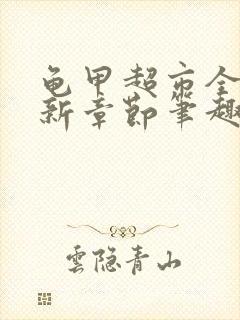 龟甲超市全
新章节笔趣
雲隐青山